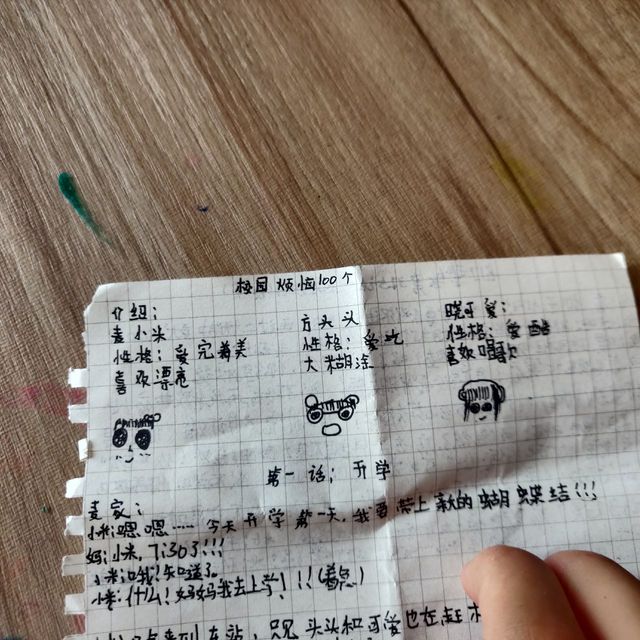 校园烦恼100个
介绍：
麦小米
性格：爱完美
喜欢漂亮
方头头
性格：爱吃
大糊涂
晓可爱：
性格：爱酷
喜欢唱歌
第一话：开学
麦家：
小米：嗯嗯……今天开学第一天，我要带上新的蝴蝶结!!!
妈：小米，7:30了!!!
小米：哦！知道了
小米：什么！妈妈我去上学！!!(着急)
来到车站，只见头头和可爱也在赶